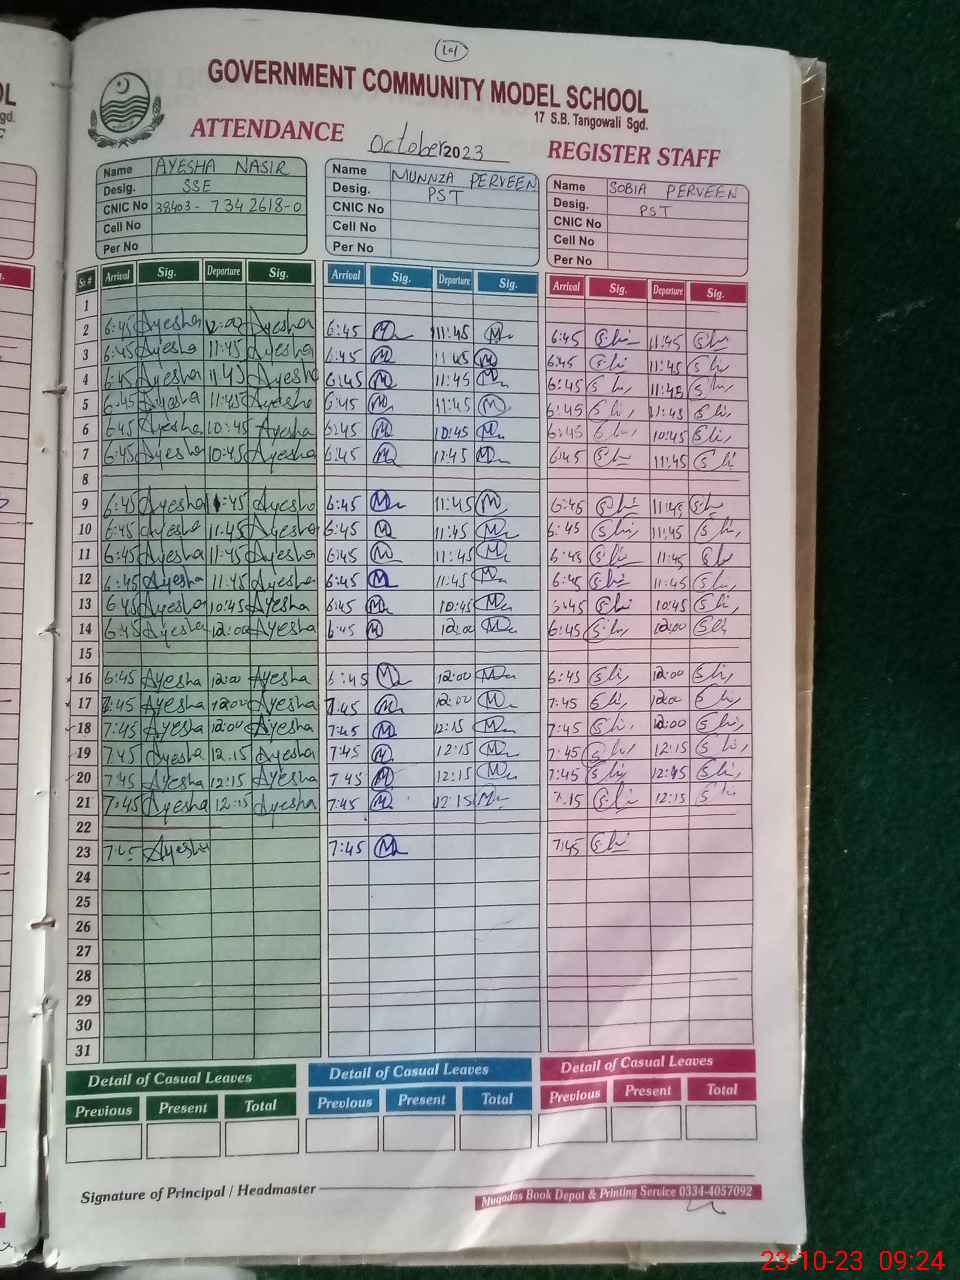 101
GOVERNMENT COMMUNITY MODEL SCHOOL
17 S.B. Tangowali Sgd.
ATTENDANCE October 2023 REGISTER STAFF
Name AYESHA NASIR Name MUNNZA PERVEEN Name SOBIA PERVEEN
Desig. SSE Desig. PST Desig. PST
CNIC No 38403-7342618-0 CNIC No CNIC No
Cell No Cell No Cell No
Per No Per No Per No
Sr.# Arrival Sig. Departure Sig. Arrival Sig. Departure Sig. Arrival Sig. Departure Sig.
1
2 6:45 Ayesha 12:00 Ayesha 6:45 M 11:45 M 6:45 11:45
3 6:45 Ayesha 11:45 Ayesha 6:45 M 11:45 M 6:45 11:45
4 6:45 Ayesha 11:45 Ayesha 6:45 M 11:45 M 6:45 11:45
5 6:45 Ayesha 11:45 Ayesha 6:45 M 11:45 M 6:45 11:45
6 6:45 Ayesha 10:45 Ayesha 6:45 M 10:45 M 6:45 10:45
7 6:45 Ayesha 10:45 Ayesha 6:45 M M 6:45 11:45
8
9 6:45 Ayesha 11:45 Ayesha 6:45 M 11:45 M 6:45 11:45
10 6:45 Ayesha 11:45 Ayesha 6:45 M 11:45 M 6:45 11:45
11 6:45 Ayesha 11:45 Ayesha 6:45 M 11:45 M 6:45 11:45
12 6:45 Ayesha 11:45 Ayesha 6:45 M 11:45 M 6:45 11:45
13 6:45 Ayesha 10:45 Ayesha 6:45 M 10:45 M 10:45
14 6:45 Ayesha 12:00 Ayesha 6:45 M 12:00 M 6:45 12:00
15
16 6:45 Ayesha 12:00 Ayesha 6:45 M 12:00 M 6:45 12:00
17 7:45 Ayesha 12:00 Ayesha 7:45 M 12:00 M 7:45 12:00
18 7:45 Ayesha 12:00 Ayesha 7:45 M 12:15 M 7:45 12:00
19 7:45 Ayesha 12:15 Ayesha 7:45 M 12:15 M 7:45 12:15
20 7:45 Ayesha 12:15 Ayesha 7:45 M 12:15 M 7:45 12:15
21 7:45 Ayesha 12:15 Ayesha 7:45 M 12:15 M 7:15 12:15
22
23 7:45 Ayesha 7:45 M 7:45
24
25
26
27
28
29
30
31
Detail of Casual Leaves Detail of Casual Leaves Detail of Casual Leaves
Previous Present Total Previous Present Total Previous Present Total
Signature of Principal / Headmaster
Muqadas Book Depot & Printing Service 0334-4057092
23-10-23 09:24